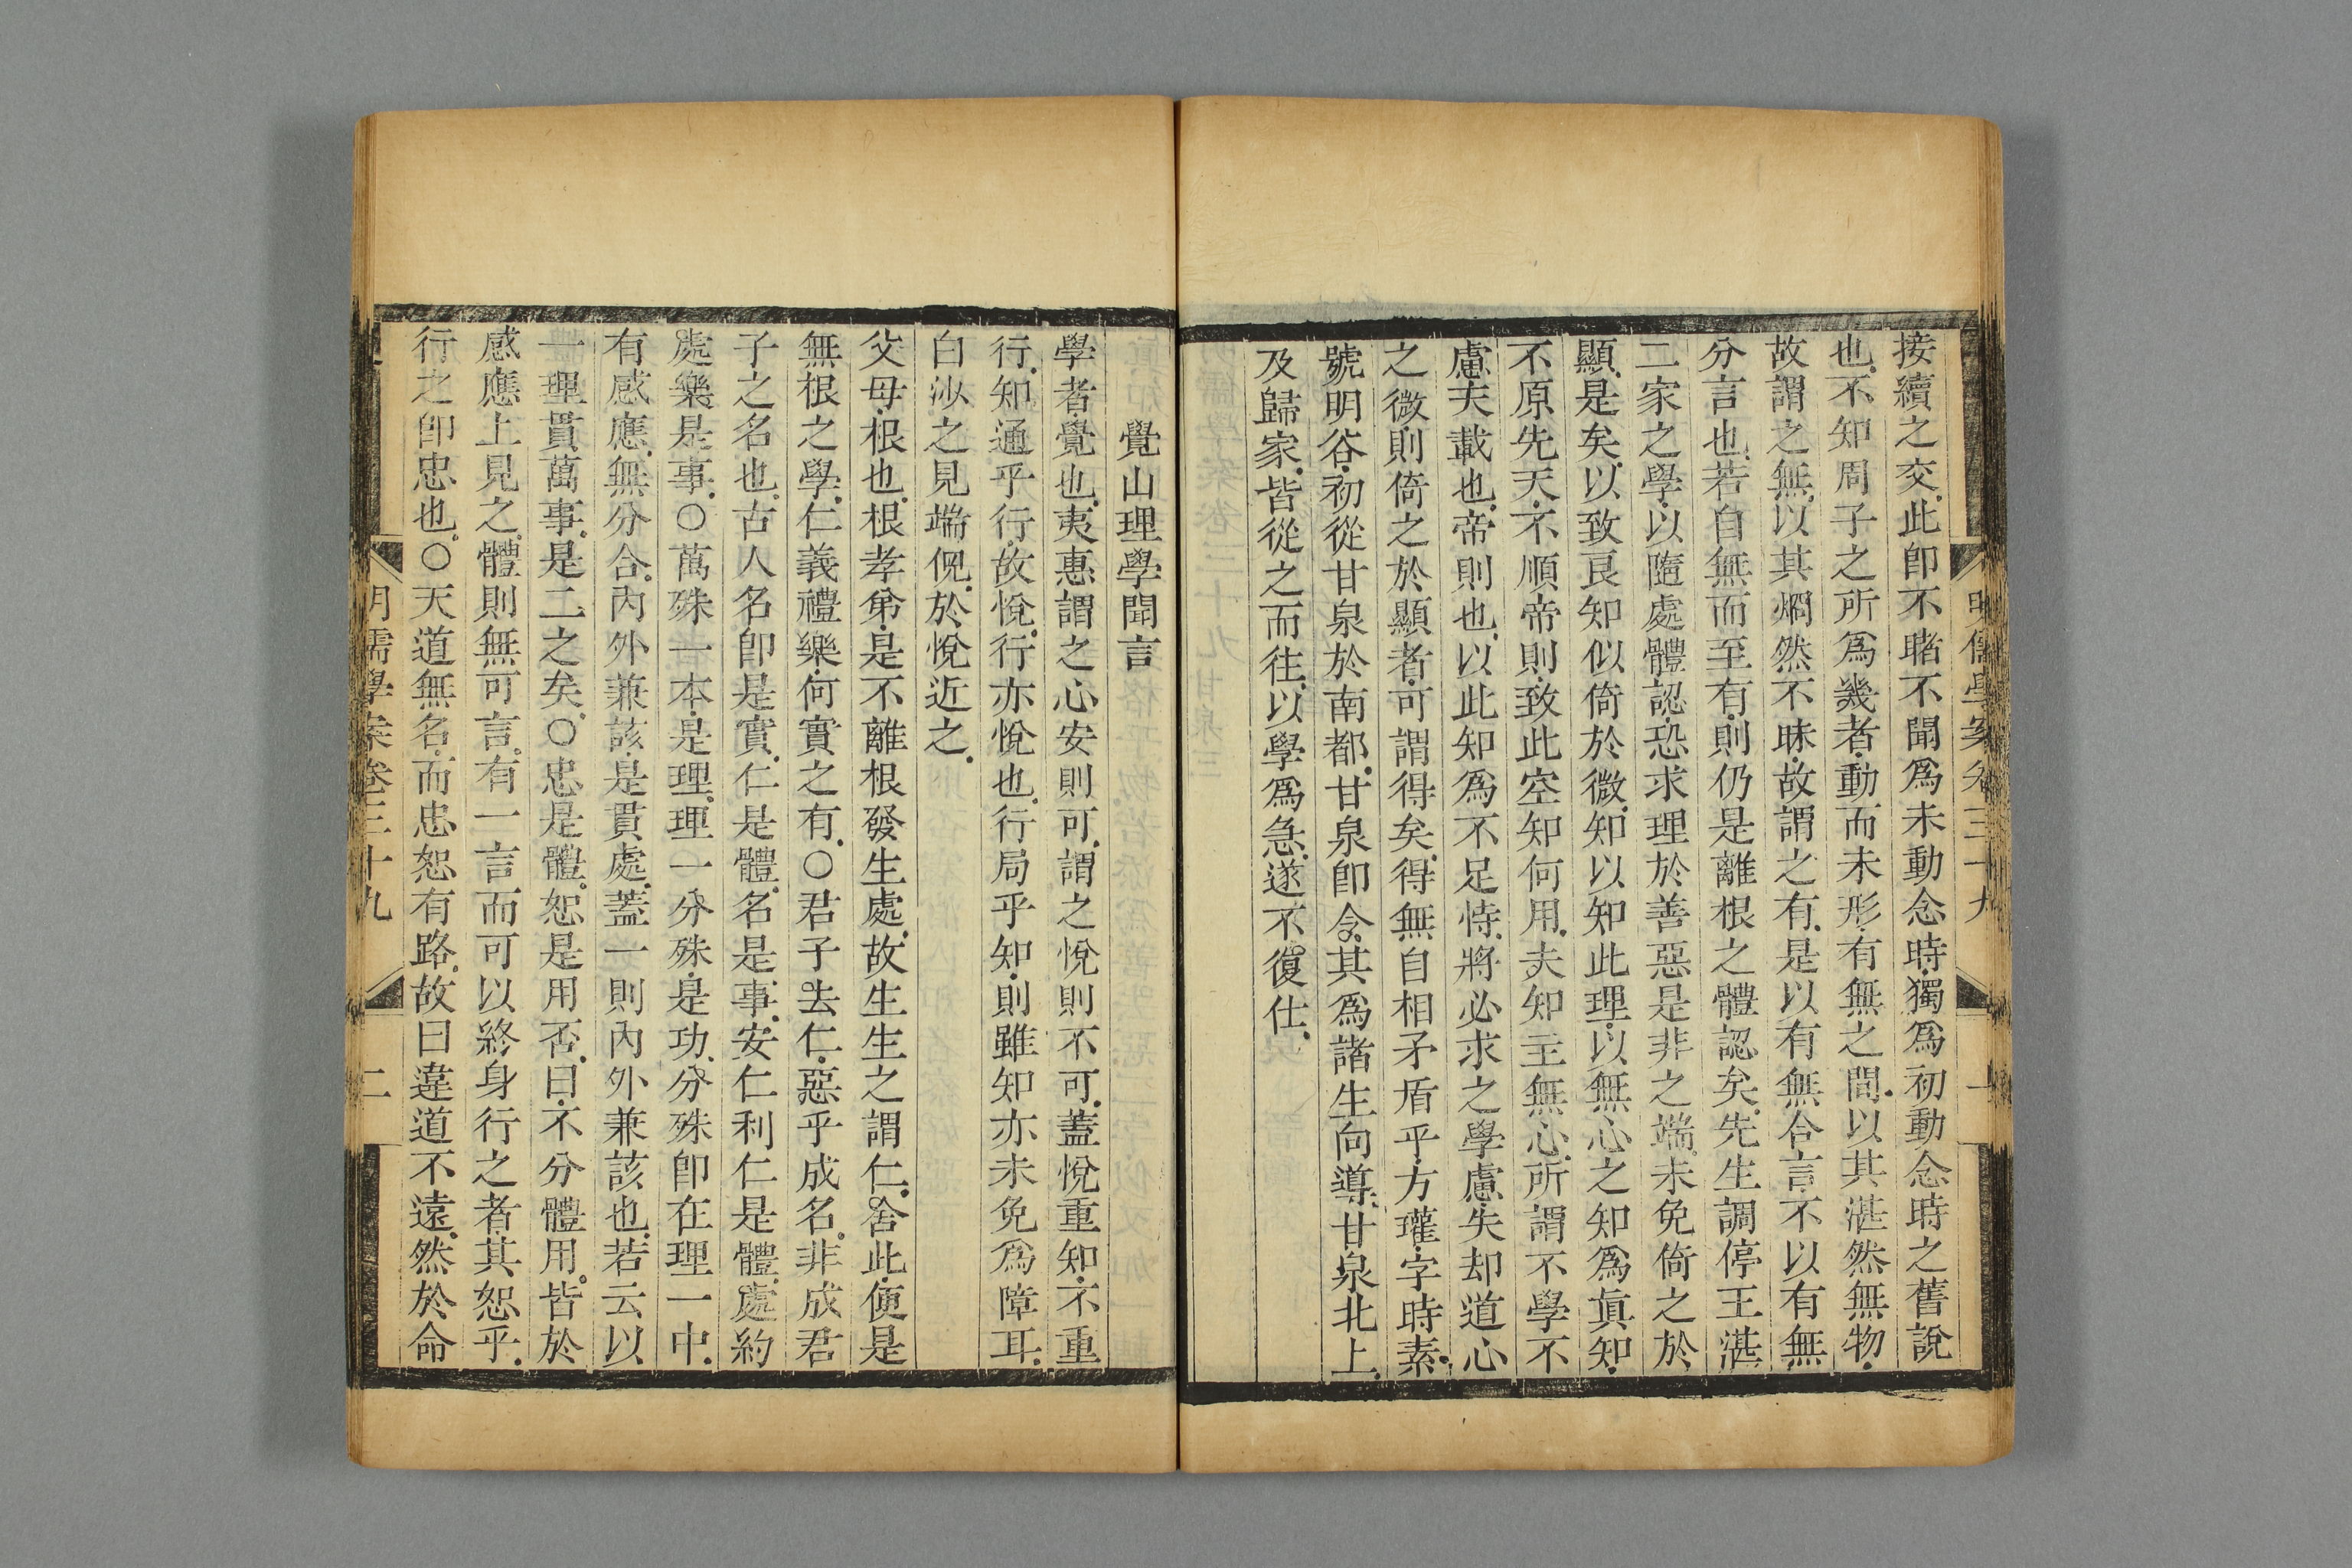 明儒學案卷三十九
一
接續之交此卽不睹不聞爲未動念時獨爲初動念時之舊說
也不知周子之所爲幾者動而未形有無之間以其湛然無物
故謂之無以其烱然不昧故謂之有是以有無合言不以有無
分言也若自無而至有則仍是離根之體認矣先生調停王湛
二家之學以隨處體認恐求理於善惡是非之端未免倚之於
顯是矣以致良知似倚於微知以知此理以無心之知爲眞知
不原先天不順帝則致此空知何用夫知主無心所謂不學不
慮天載也帝則也以此知爲不足恃將必求之學慮失却道心
之微則倚之於顯者可謂得矣得無自相矛盾乎方瓘字時素
號明谷初從甘泉於南都甘泉卽令其爲諸生向導甘泉北上
及歸家皆從之而往以學爲急遂不復仕
覺山理學聞言
學者覺也夷惠謂之心安則可謂之悅則不可蓋悅重知不重
行知通乎行故悅行亦悅也行局乎知則雖知亦未免爲障耳
白沙之見端倪於悅近之
父母根也根孝弟是不離根發生處故生生之謂仁舍此便是
無根之學仁義禮樂何實之有○君子去仁惡乎成名非成君
子之名也古人名卽是實仁是體名是事安仁利仁是體處約
處樂是事○萬殊一本是理理一分殊是功分殊卽在理一中
有感應無分合內外兼該是貫處蓋一則內外兼該也若云以
一理貫萬事是二之矣○忠是體恕是用否曰不分體用皆於
感應上見之體則無可言有一言而可以終身行之者其恕乎
行之卽忠也○天道無名而忠恕有路故曰違道不遠然於命
明儒學案卷三十九
二